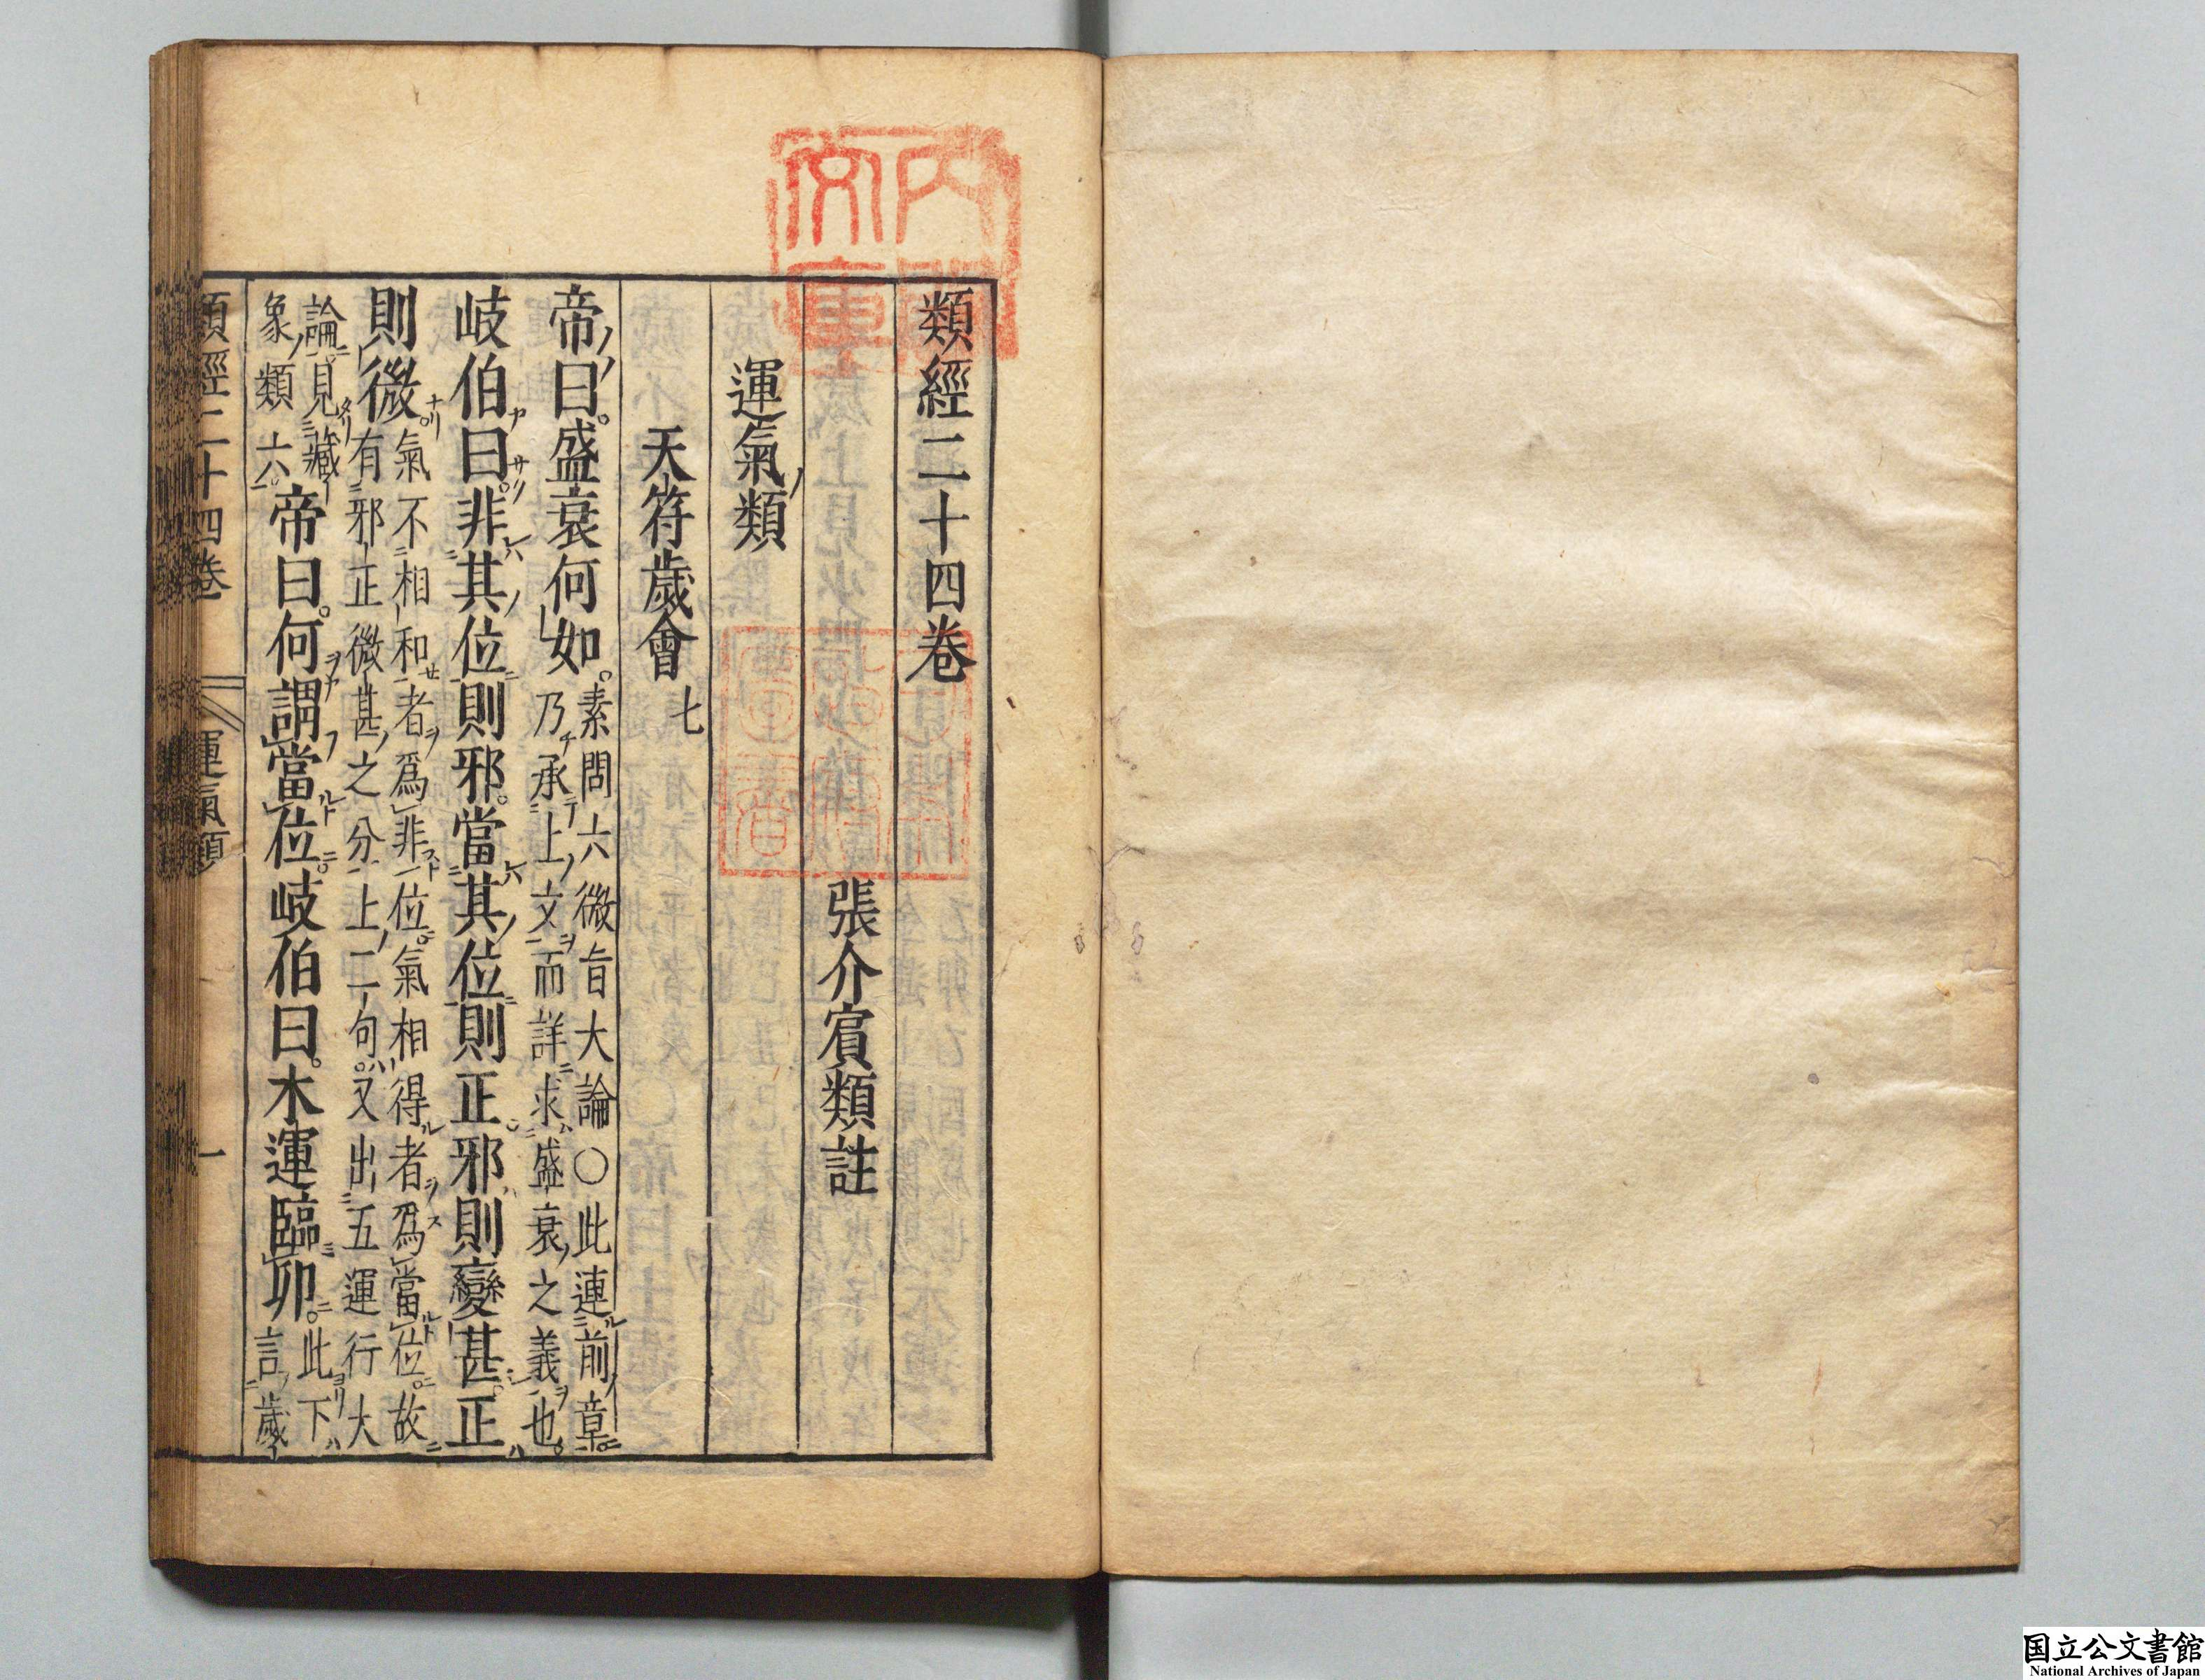 類經二十四卷
張介賓類註
運氣類
天符歲會 七
帝曰。盛衰何如。素問六微旨大論○此連前章。
乃承上文而詳求盛衰之義也。
岐伯曰。非其位則邪。當其位則正。邪則變甚。正
則微。氣不相和者爲非位。氣相得者爲當位。故
有邪正微甚之分。上二句。又出五運行大
論。見藏
象類六。帝曰。何謂當位。岐伯曰。木運臨卯。此下
言歲
類經二十四卷 運氣類 一
内閣
文庫
国立公文書館
National Archives of Japan